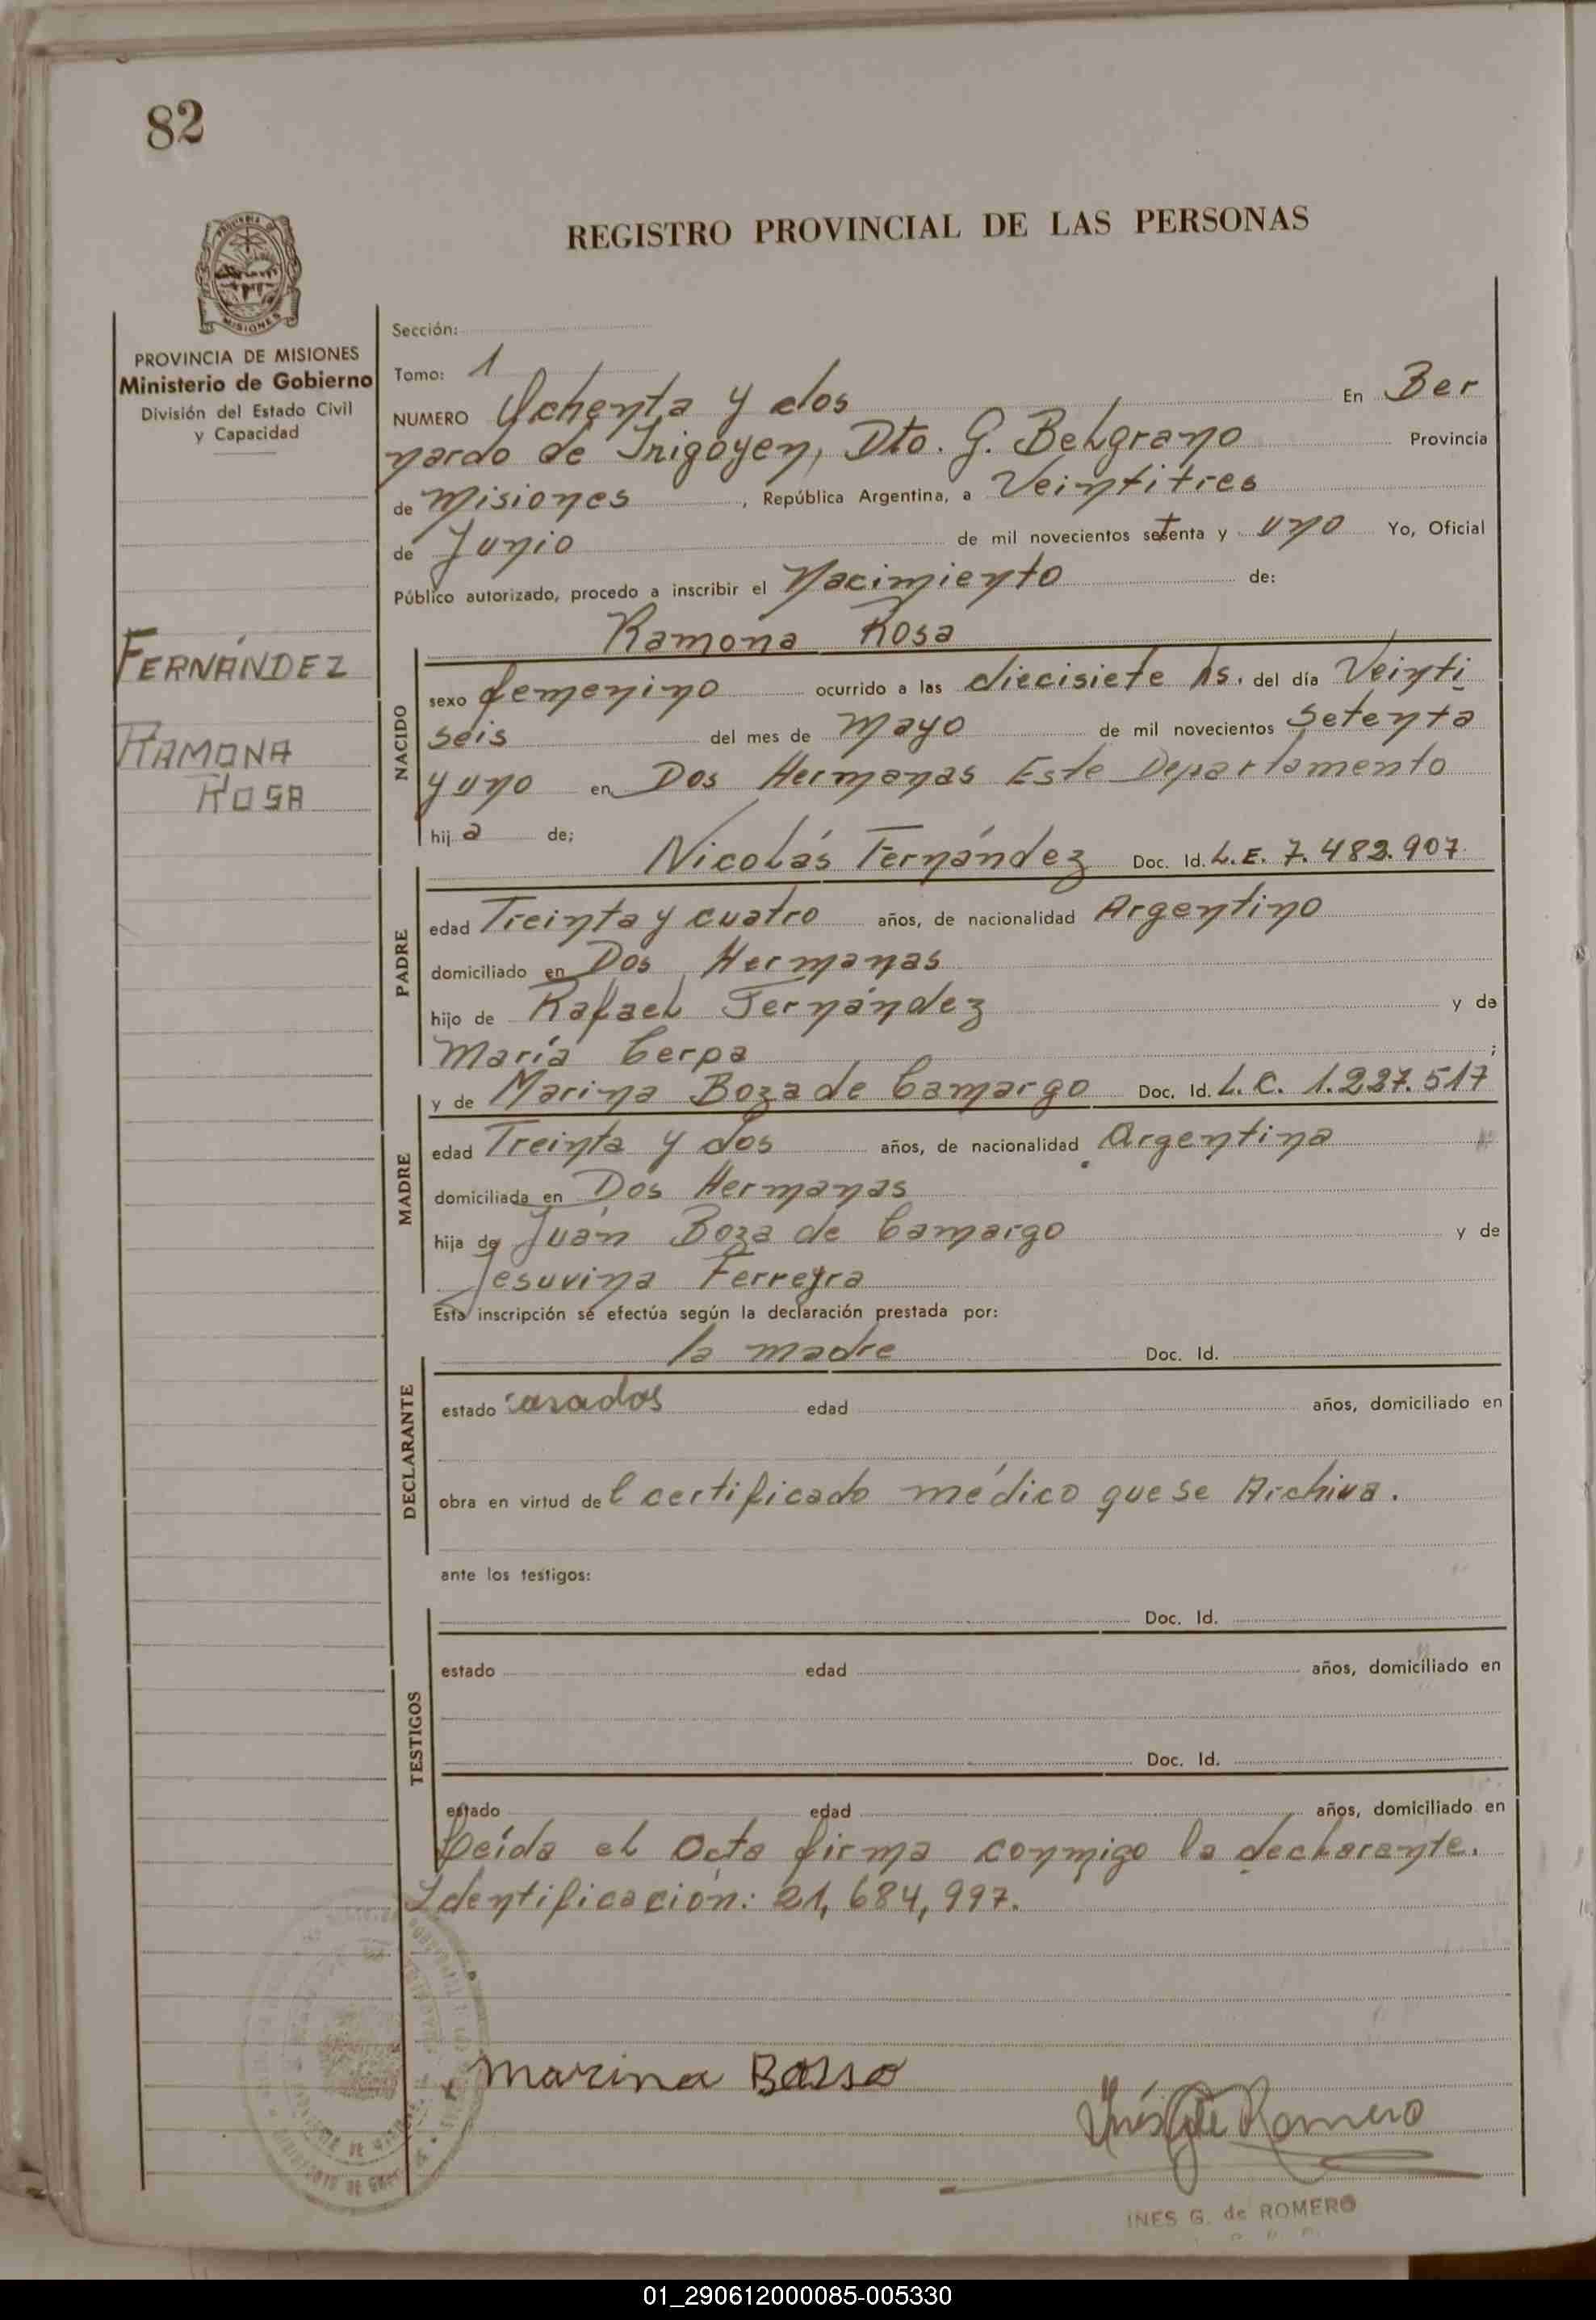 82
REGISTRO PROVINCIAL DE LAS PERSONAS
MISIONES
PROVINCIA DE MISIONES
Ministerio de Gobierno
División del Estado Civil
y Capacidad
FERNÁNDEZ
RAMONA
ROSA
Sección:
Tomo: 1
NUMERO Ochenta y dos En Ber
nardo de Irigoyen, Dto. G. Belgrano Provincia
de Misiones, República Argentina, a Veintitres
de Junio de mil novecientos setenta y uno Yo, Oficial
Público autorizado, procedo a inscribir el Nacimiento de:
Ramona Rosa
NACIDO
sexo femenino ocurrido a las diecisiete hs. del día Veinti
seis del mes de mayo de mil novecientos setenta
y uno en Dos Hermanas Este Departamento
hija de;
Nicolás Fernández Doc. Id. L.E. 7.483.907
PADRE
edad Treinta y cuatro años, de nacionalidad Argentino
domiciliado en Dos Hermanas
hijo de Rafael Fernández y de
María Cerpa ;
y de Marina Boza de Camargo Doc. Id. L.C. 1.227.517
MADRE
edad Treinta y dos años, de nacionalidad Argentina
domiciliada en Dos Hermanas
hija de Juan Boza de Camargo y de
Jesuvina Ferreyra
Esta inscripción se efectúa según la declaración prestada por:
la madre Doc. Id.
DECLARANTE
estado casados edad años, domiciliado en
obra en virtud del certificado médico que se Archiva.
ante los testigos:
Doc. Id.
TESTIGOS
estado edad años, domiciliado en
Doc. Id.
estado edad años, domiciliado en
Leída el Acta firma conmigo la declarante.
Identificación: 21,684,997.
x Marina Basso
Inés G de Romero
INES G. de ROMERO
01_290612000085-005330